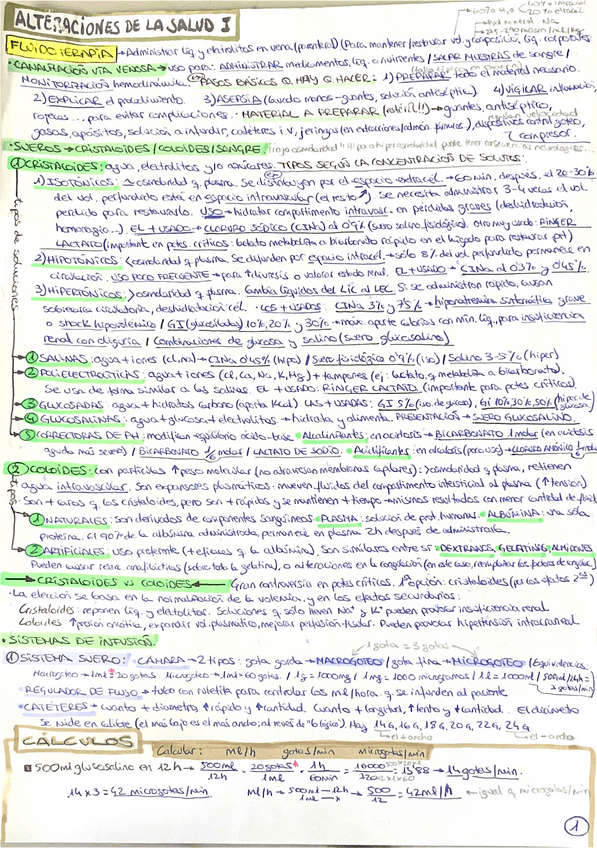 ALTERACIONES DE LA SALUD I
60% H2O
40% intracel
20% extracel
Na
275-290 mosm/ml/kg
FLUIDOTERAPIA → Administrar líq. y eletrolitos en vena (parenteral) (Para mantener/restaurar vol. y composición líq. corporales
· CANALIZACIÓN VÍA VENOSA → uso para: ADMINISTRAR medicamentos, líq. o nutrientes / SACAR MUESTRAS de sangre /
MONITORIZACIÓN hemodinámica. PASOS BÁSICOS Q. HAY Q HACER: 1) PREPARAR todo el material necesario.
2) EXPLICAR el procedimiento. 3) ASEPSIA (lavado manos - guantes, solución antiséptica) 4) VIGILAR inflamación,
rojeces... para evitar complicaciones. · MATERIAL A PREPARAR (estéril!!) → guantes, antiséptico,
gasas, apósitos, solución a infundir, catéteres i.v, jeringas (en extracciones/admón. fármacos), dispositivos control goteo,
compresor.
regulan velocidad
· SUEROS → CRISTALOIDES / COLOIDES / SANGRE.
① CRISTALOIDES: agua, electrolitos y/o azúcares. TIPOS SEGÚN LA CONCENTRACIÓN DE SOLUTOS:
1) ISOTÓNICOS: = osmolaridad q. plasma. Se distribuyen por el espacio extracel. → 60 min. después, el 20-30%
del vol. perfundido está en espacio intravascular (el resto ↗) Se necesita administrar 3-4 veces el vol.
perdido para restaurarlo. USO → hidratar compartimento intravasc. en pérdidas graves (deshidratación,
hemorragia...). EL + USADO → CLORURO SÓDICO (ClNa) al 0'9% (suero salino fisiológico). otro muy usado: RINGER
LACTATO (importante en pctes. críticos: lactato metaboliza a bicarbonato rápido en el hígado para restaurar pH)
2) HIPOTÓNICOS: < osmolaridad q. plasma. Se difunden por espacio intracel. → sólo 8% del vol. perfundido permanece en
circulación. USO POCO FRECUENTE → para ↑ diuresis o valorar estado renal. EL + USADO → ClNa al 0'3% y 0'45%
3) HIPERTÓNICOS: > osmolaridad q. plasma. Cambia líquidos del LIC al LEC. Si se administran rápido, causan
sobrecarga circulatoria, deshidratación cél. · LOS + USADOS: ClNa 3% y 7'5% → hiponatremia sintomática grave
o shock hipovolémico / GI (glucosilados) 10%, 20% y 30% → máx. aporte calorías con mín. líq., para insuficiencia
renal con oliguria / Combinaciones de glucosa y salino (suero glucosalino)
tipos de soluciones
① SALINAS: agua + iones (Cl, Na) → ClNa 0'45% (Hipo) / Suero fisiológico 0'9% (iso) / Salino 3-5% (hiper)
② POLIELECTROLÍTICAS: agua + iones (Cl, Ca, Na, K, Mg) + tampones (ej: lactato, q. metaboliza a bicarbonato).
Se usa de forma similar a las salinas. EL + usado: RINGER LACTATO (importante para pctes. críticos).
③ GLUCOSADAS: agua + hidratos carbono (aporta Kcal) LAS + USADAS: GI 5% (iso. de glucosa), GI 10%, 30%, 50% (hiper. de glucosa)
④ GLUCOSALINAS: agua + glucosa + electrolitos → hidrata y alimenta. PRESENTACIÓN → SUERO GLUCOSALINO.
⑤ CORRECTORAS DE PH: modifican equilibrio ácido-base. Alcalinizantes: en acidosis → BICARBONATO 1 molar (en acidosis
aguda más severa) / BICARBONATO 1/6 molar / LACTATO DE SODIO. Acidificantes: en alcalosis (poco uso) → CLORURO AMÓNICO 1/6 molar
② COLOIDES: con partículas ↑ peso molecular (no atraviesan membranas capilares): > osmolaridad q. plasma, retienen
agua intravascular. Son expansores plasmáticos: mueven fluidos del compartimento intersticial al plasma (↑ tensión)
Son + caros q. los cristaloides, pero son + rápidos y se mantienen + tiempo → mismos resultados con menor cantidad de fluido
tipos
① NATURALES: Son derivados de componentes sanguíneos. PLASMA: solución de prot. humanas. ALBÚMINA: una sola
proteína. El 90% de la albúmina administrada, permanece en plasma 2h después de administrarla.
② ARTIFICIALES: USO preferente (+ eficaces q. la albúmina), son similares entre sí: DEXTRANOS, GELATINAS, ALMIDONES
Pueden causar reacc. anafilácticas (sobretodo la gelatina), o alteraciones en la coagulación (en este caso, reemplazar los factores de coagulac.)
→ CRISTALOIDES VS COLOIDES ← Gran controversia en pctes. críticos. 1ª opción: cristaloides (por los efectos 2os)
· La elección se basa en la normalización de la volemia, y en los efectos secundarios:
Cristaloides: reponen líq. y eletrolitos. Soluciones q. sólo tienen Na+ y K+ pueden provocar insuficiencia renal
Coloides: ↑ presión oncótica, expandir vol. plasmático, mejorar perfusión tisular. Pueden provocar hipertensión intracraneal
· SISTEMAS DE INFUSIÓN.
1 gota = 3 gotas
① SISTEMA SUERO: CÁMARA → 2 tipos: gota gorda → MACROGOTEO / gota fina → MICROGOTEO (Equivalencias:
Macrogoteo → 1ml = 20 gotas Microgoteo → 1ml = 60 gotas / 1g = 1000mg / 1mg = 1000 microgramos / 1L = 1000ml / 500ml/24h =
7 gotas/min)
REGULADOR DE FLUJO → tubo con ruletita para controlar los ml/hora. q. se infunden al paciente
CATÉTERES → Cuanto + diámetro ↑ rápido y ↑ cantidad. Cuanto + longitud, ↑ lento y ↑ cantidad. El diámetro
se mide en calibre (el más bajo es el más ancho, al revés de "lo lógico"). Hay 14G, 16G, 18G, 20G, 22G, 24G
el + ancho
el - ancho
CÁLCULOS
Calcular: ml/h gotas/min microgotas/min
■ 500ml glucosalino en 12h → 500ml/12h · 20gotas*/1ml · 1h/60min = 10000/720 = 13'88 → 14 gotas/min.
14 x 3 = 42 microgotas/min ml/h → 500ml — 12h = 500/12 = 42ml/h → igual q microgotas/min
1